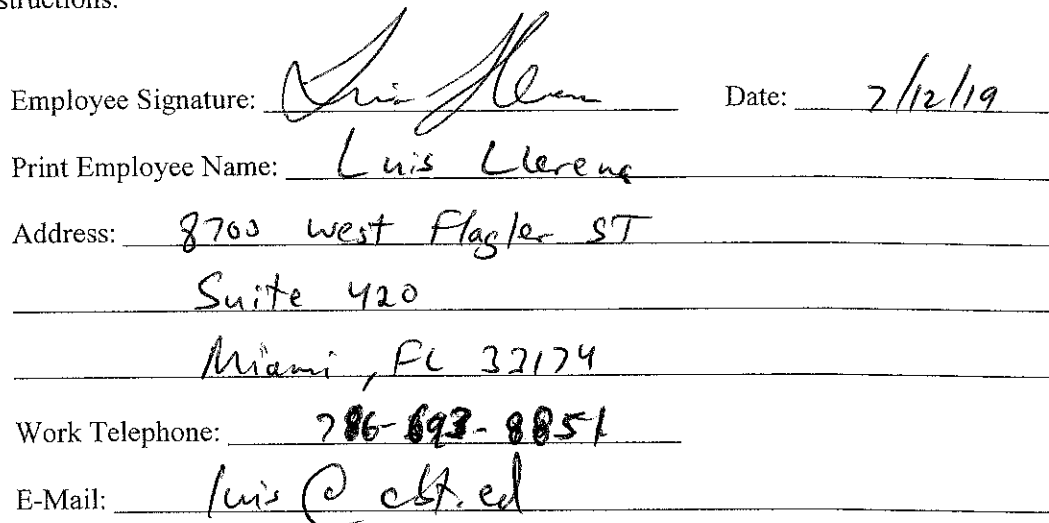 structions.
Employee Signature: Date: 7/12/19
Print Employee Name: Luis Llerena
Address: 8700 West Flagler ST
Suite 420
Miami, FL 33174
Work Telephone: 786-693-8851
E-Mail: luis@cbt.ed